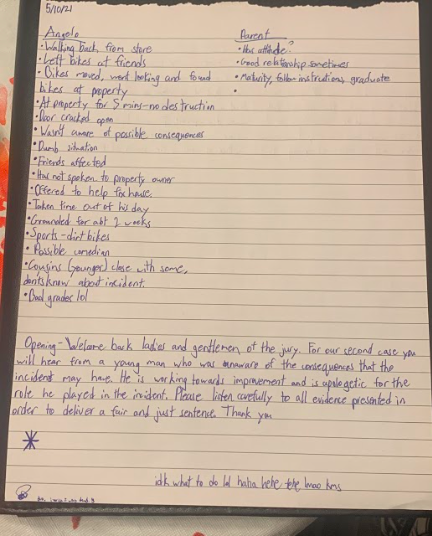 5/10/21
Angelo
Parent
• Walking back from store
• Has attitude?
• Left bikes at friends
• Good relationship sometimes
• Bikes moved, went looking and found
• Maturity, follow instructions, graduate
bikes at property
•
• At property for 5 mins - no destruction
• Door cracked open
• Wasn't aware of possible consequences
• Dumb situation
• Friends affected
• Has not spoken to property owner
• Offered to help fix house.
• Taken time out of his day
• Grounded for abt 2 weeks
• Sports - dirt bikes
• Possible comedian
• Cousins (younger) close with some,
don't know about incident.
• Good grades lol
Opening - Welcome back ladies and gentlemen of the jury. For our second case you
will hear from a young man who was unaware of the consequences that the
incident may have. He is working towards improvement and is apologetic for the
role he played in the incident. Please listen carefully to all evidence presented in
order to deliver a fair and just sentence. Thank you
idk what to do lol haha hehe lmao kms